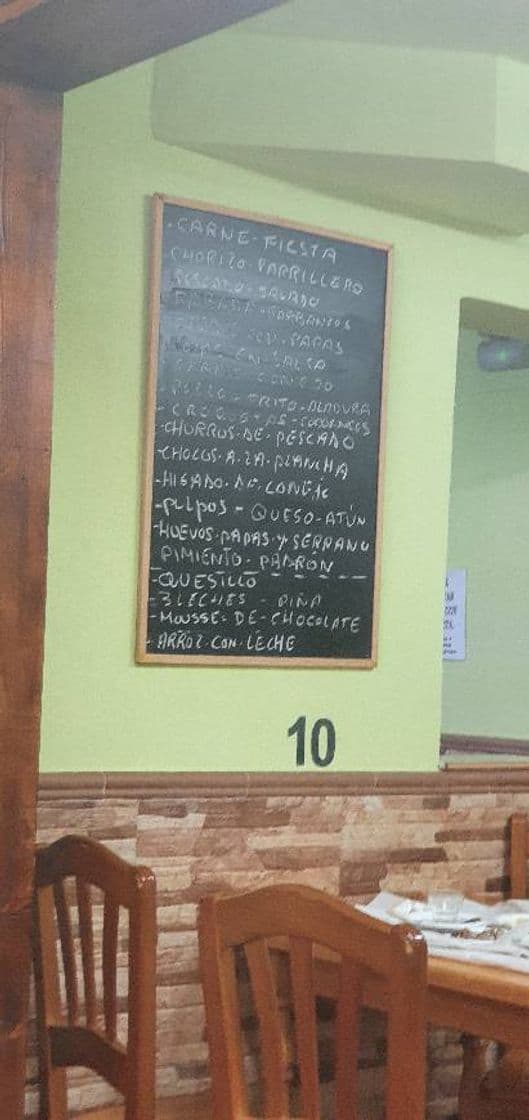 . CARNE - FIESTA
CHORIZO - PARRILLERO
PESCADO - SALADO
GARBANZOS
CON - PAPAS
EN SALSA
CONEJO
POLLO - FRITO -
- CROQUETAS -
- CHURROS - DE - PESCADO
- CHOCOS - A - LA - PLANCHA
- HIGADO - DE - CONEJO
- PULPOS - QUESO - ATÚN
- HUEVOS - PAPAS - Y SERRANO
PIMIENTO - PADRON
- QUESILLO
- 3 LECHES - PIÑA
- MOUSSE - DE - CHOCOLATE
- ARROZ - CON - LECHE
10